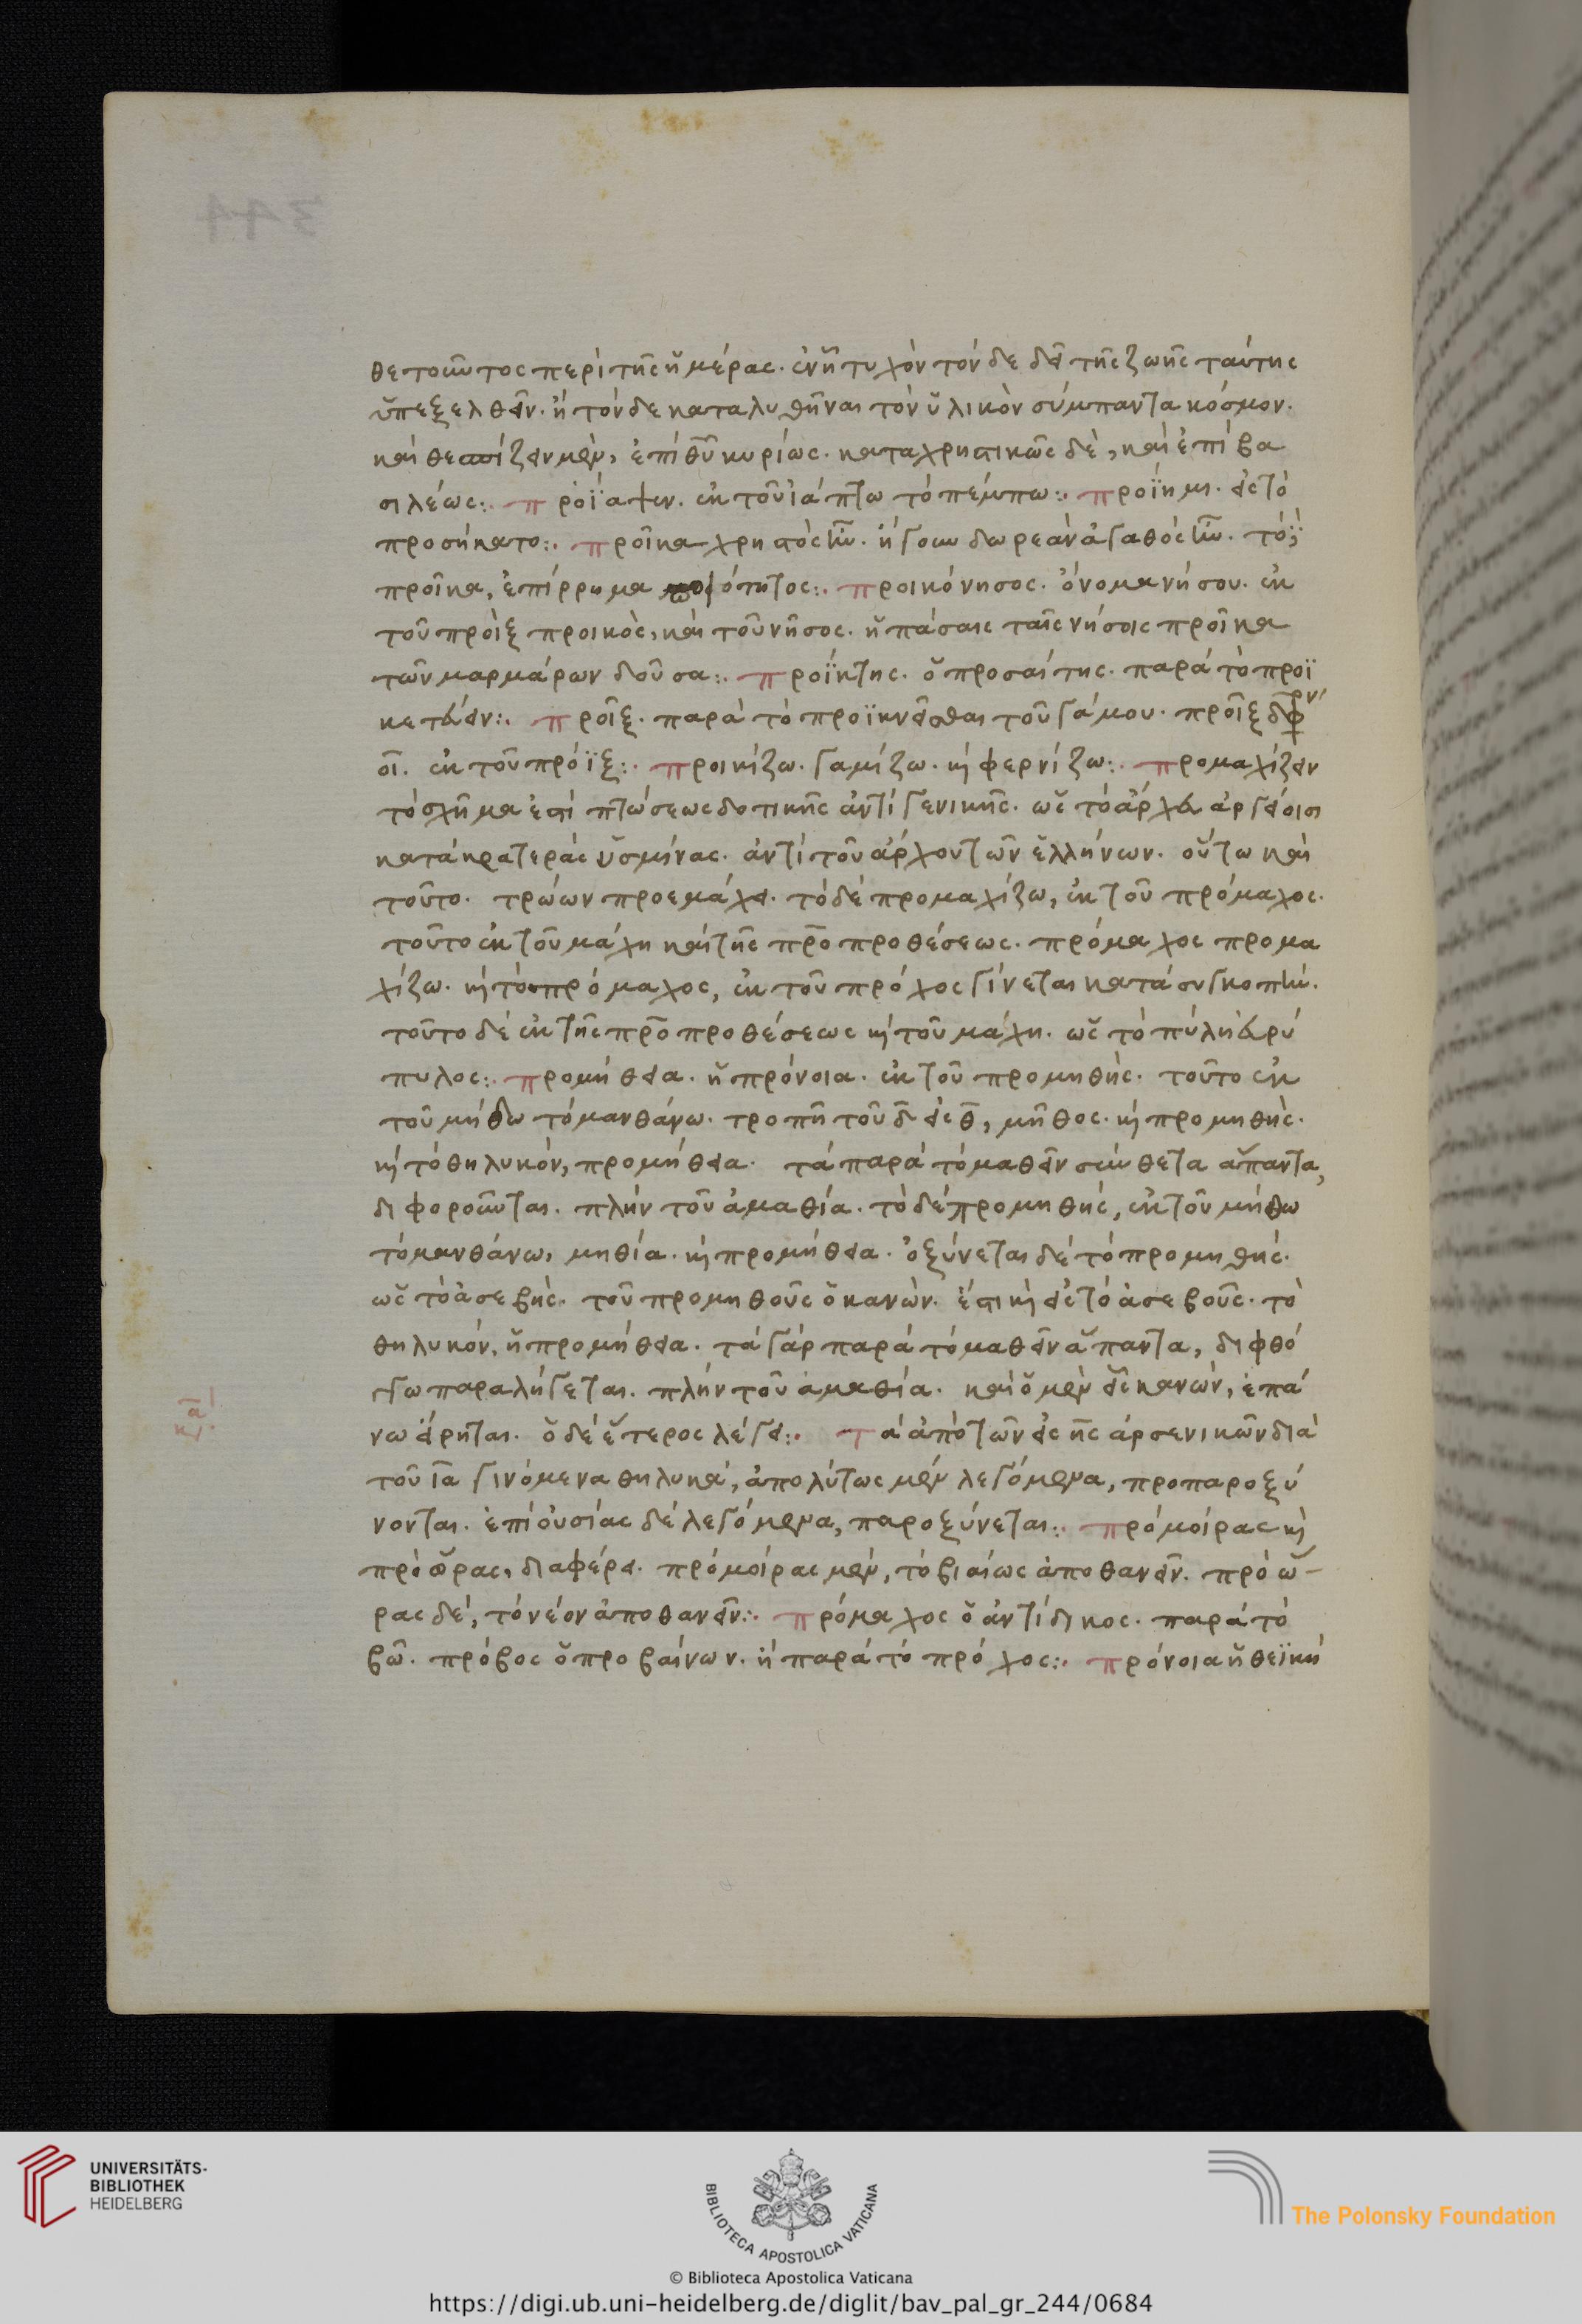 θετοῦντος περὶ τῆς ἡμέρας. ἐν ᾗ τυχὸν τόνδε δεῖ τῆς ζωῆς ταύτης
ὑπεξελθεῖν. ἢ τόνδε καταλυθῆναι τὸν ὑλικὸν σύμπαντα κόσμον.
καὶ θεσπίζειν μὲν, ἐπὶ θῦ κυρίως. καταχρηστικῶς δὲ, καὶ ἐπὶ βα
σιλέως:. προϊάψειν. ἐκ τοῦ ἰάπτω τὸ πέμπω:. προΐημι. εἰς τὸ
προσήκατο:. προῖκα χρηστὸς ἦν. ἤγουν δωρεὰν ἀγαθὸς ἦν. τὸ
προῖκα, ἐπίρρημα ποιότητος:. προικόνησος. ὄνομα νήσου. ἐκ
τοῦ πρὸιξ προικὸς, καὶ τοῦ νῆσος. ἡ πάσαις ταῖς νήσοις προῖκα
τῶν μαρμάρων δοῦσα:. προΐκτης. ὁ προσαίτης. παρὰ τὸ προϊ
κετεύειν:. προῖξ. παρὰ τὸ προϊκνεῖσθαι τοῦ γάμου. προῖξ
οῖ. ἐκ τοῦ πρόϊξ:. προικίζω. γαμίζω. καὶ φερνίζω:. προμαχίζειν
τὸ σχῆμα ἐστὶ πτώσεως δοτικῆς ἀντὶ γενικῆς. ὡς τὸ ἀρχεύ ἀργείοισι
κατὰ κρατερὰς ὑσμίνας. ἀντὶ τοῦ ἄρχου τῶν ἑλλήνων. οὕτω καὶ
τοῦτο. τρώων προεμάχει. τὸ δὲ προμαχίζω, ἐκ τοῦ πρόμαχος.
τοῦτο ἐκ τοῦ μάχη καὶ τῆς προ προθέσεως. πρόμαχος προμα
χίζω. καὶ τὸ πρόμαχος, ἐκ τοῦ πρόχος γίνεται κατὰ συγκοπήν.
τοῦτο δὲ ἐκ τῆς προ προθέσεως καὶ τοῦ μάχη. ὡς τὸ πύλη εὐρύ
πυλος:. προμήθεια. ἡ πρόνοια. ἐκ τοῦ προμηθὴς. τοῦτο ἐκ
τοῦ μήδω τὸ μανθάνω. τροπῆ τοῦ δ εἰς θ, μῆθος. καὶ προμηθὴς.
καὶ τὸ θηλυκὸν, προμήθεια. τὰ παρὰ τὸ μαθεῖν σύνθετα ἅπαντα,
διφοροῦνται. πλὴν τοῦ ἀμαθία. τὸ δὲ προμηθὴς, ἐκ τοῦ μήθω
τὸ μανθάνω, μηθία. καὶ προμήθεια. ὀξύνεται δὲ τὸ προμηθὴς.
ὡς τὸ ἀσεβὴς. τοῦ προμηθοῦς ὁ κανὼν. ἐστι καὶ εἰς τὸ ἀσεβοῦς. τὸ
θηλυκὸν, ἡ προμήθεια. τὰ γὰρ παρὰ τὸ μαθεῖν ἅπαντα, διφθό
γγω παραλήγεται. πλὴν τοῦ ἀμαθία. καὶ ὁ μὲν εἷς κανὼν, ἐπά
νω εἴρηται. ὁ δὲ ἕτερος λέγει:. τὰ ἀπὸ τῶν εἰς ης ἀρσενικῶν διὰ
τοῦ ῑα γινόμενα θηλυκὰ, ἀπολύτως μὲν λεγόμενα, προπαροξύ
νονται. ἐπὶ οὐσίας δὲ λεγόμενα, παροξύνεται:. πρὸ μοίρας καὶ
πρὸ ὥρας, διαφέρει. πρὸ μοίρας μὲν, τὸ βιαίως ἀποθανεῖν. πρὸ ὥ-
ρας δὲ, τὸ νέον ἀποθανεῖν:. πρόμαχος ὁ ἀντίδικος. παρὰ τὸ
βῶ. πρόβος ὁ προβαίνων. ἢ παρὰ τὸ πρόχος:. πρόνοια ἡ θεϊκὴ
UNIVERSITÄTS-
BIBLIOTHEK
HEIDELBERG
BIBLIOTECA APOSTOLICA VATICANA
The Polonsky Foundation
© Biblioteca Apostolica Vaticana
https://digi.ub.uni-heidelberg.de/diglit/bav_pal_gr_244/0684